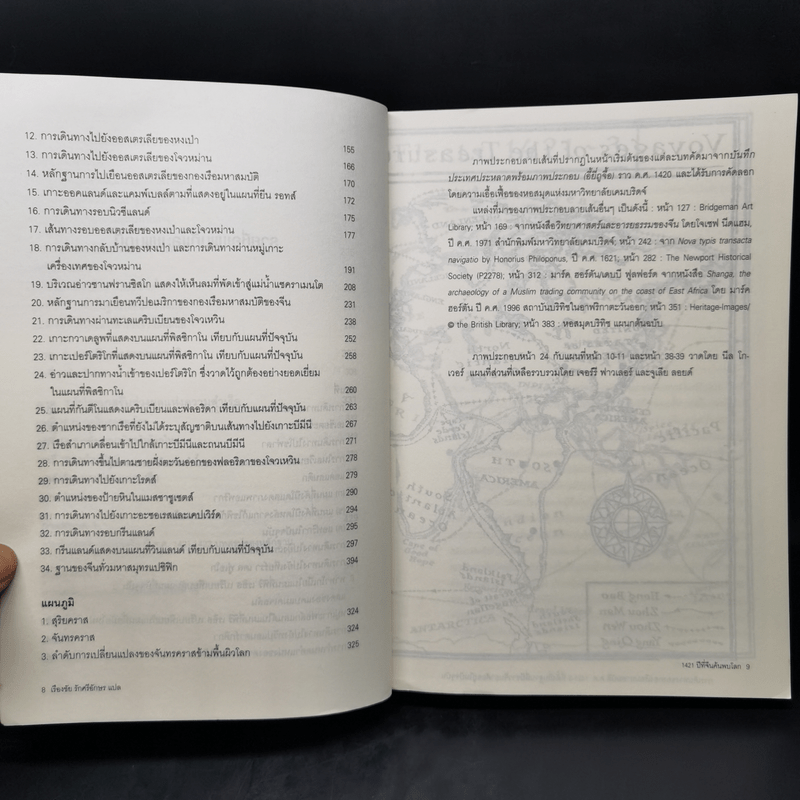 12. การเดินทางไปยังออสเตรเลียของหงเป่า 155
13. การเดินทางไปยังออสเตรเลียของโจวหม่าน 166
14. หลักฐานการไปเยือนออสเตรเลียของกองเรือมหาสมบัติ 170
15. เกาะออคแลนด์และแคมพ์เบลล์ตามที่แสดงอยู่ในแผนที่ยีน รอทส์ 172
16. การเดินทางรอบนิวซีแลนด์ 175
17. เส้นทางรอบออสเตรเลียของหงเป่าและโจวหม่าน 177
18. การเดินทางกลับบ้านของหงเป่า และการเดินทางผ่านหมู่เกาะ
เครื่องเทศของโจวหม่าน 191
19. บริเวณอ่าวซานฟรานซิสโก แสดงให้เห็นลมที่พัดเข้าสู่แม่น้ำแซคราเมนโต 208
20. หลักฐานการมาเยือนทวีปอเมริกาของกองเรือมหาสมบัติของจีน 231
21. การเดินทางผ่านทะเลแคริบเบียนของโจวเหวิน 238
22. เกาะกวาเดลูพที่แสดงบนแผนที่พิสซิกาโน เทียบกับแผนที่ปัจจุบัน 252
23. เกาะเปอร์โตริโกที่แสดงบนแผนที่พิสซิกาโน เทียบกับแผนที่ปัจจุบัน 258
24. อ่าวและปากทางน้ำเข้าของเปอร์โตริโก ซึ่งวาดไว้ถูกต้องอย่างยอดเยี่ยม
ในแผนที่พิสซิกาโน 260
25. แผนที่กันติโนแสดงแคริบเบียนและฟลอริดา เทียบกับแผนที่ปัจจุบัน 263
26. ตำแหน่งของซากเรือที่ยังไม่ได้ระบุสัญชาติบนเส้นทางไปยังเกาะบีมีนี 267
27. เรือสำเภาเคลื่อนเข้าไปใกล้เกาะบีมีนีและถนนบีมีนี 271
28. การเดินทางขึ้นไปตามชายฝั่งตะวันออกของฟลอริดาของโจวเหวิน 278
29. การเดินทางไปยังเกาะโรดส์ 279
30. ตำแหน่งของป้ายหินในแมสซาชูเซตส์ 290
31. การเดินทางไปยังเกาะอะซอเรสและเคปเวิร์ด 291
32. การเดินทางรอบกรีนแลนด์ 295
33. กรีนแลนด์แสดงบนแผนที่วินแลนด์ เทียบกับแผนที่ปัจจุบัน 297
34. ฐานของจีนทั่วมหาสมุทรแปซิฟิก 394
แผนภูมิ
1. สุริยคราส 324
2. จันทรคราส 324
3. ลำดับการเปลี่ยนแปลงของจันทรคราสข้ามพื้นผิวโลก 325
8 เรืองชัย รักศรีอักษร แปล
ภาพประกอบลายเส้นที่ปรากฏในหน้าเริ่มต้นของแต่ละบทคัดมาจากบันทึก
ประเทศประหลาดพร้อมภาพประกอบ (อี้ยี่ถูจื้อ) ราว ค.ศ. 1420 และได้รับการคัดลอก
โดยความเอื้อเฟื้อของหอสมุดแห่งมหาวิทยาลัยเคมบริดจ์
แหล่งที่มาของภาพประกอบลายเส้นอื่นๆ เป็นดังนี้ : หน้า 127 : Bridgeman Art
Library; หน้า 169 : จากหนังสือวิทยาศาสตร์และอารยธรรมของจีน โดยโจเซฟ นีดแฮม,
ปี ค.ศ. 1971 สำนักพิมพ์มหาวิทยาลัยเคมบริดจ์; หน้า 242 : จาก Nova typis transacta
navigatio by Honorius Philoponus, ปี ค.ศ. 1621; หน้า 282 : The Newport Historical
Society (P2278); หน้า 312 : มาร์ค ฮอร์ตัน/เดบบี ฟูลฟอร์ด จากหนังสือ Shanga, the
archaeology of a Muslim trading community on the coast of East Africa โดย มาร์ค
ฮอร์ตัน ปี ค.ศ. 1996 สถาบันบริทิชในอาฟริกาตะวันออก; หน้า 351 : Heritage-Images/
© the British Library; หน้า 383 : หอสมุดบริทิช แผนกต้นฉบับ
ภาพประกอบหน้า 24 กับแผนที่หน้า 10-11 และหน้า 38-39 วาดโดย นีล โก-
เวอร์ แผนที่ส่วนที่เหลือรวบรวมโดย เจอร์รี ฟาวเลอร์ และจูเลีย ลอยด์
1421 ปีที่จีนค้นพบโลก 9